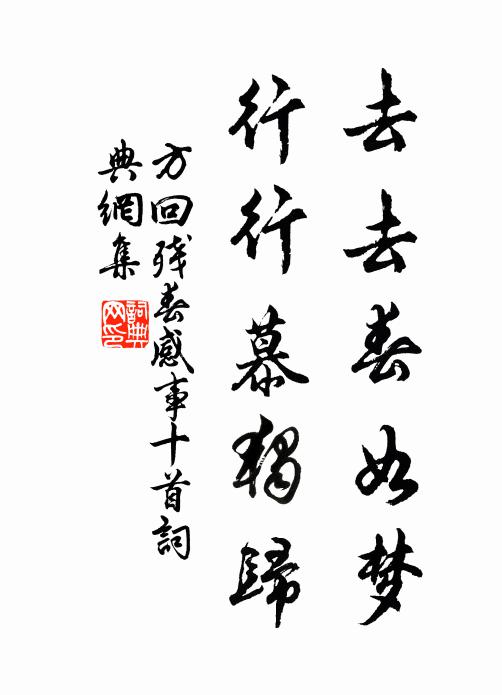 去去春如梦
行行慕独歸
方回残春感事十首詞
典網集
詞典
网印